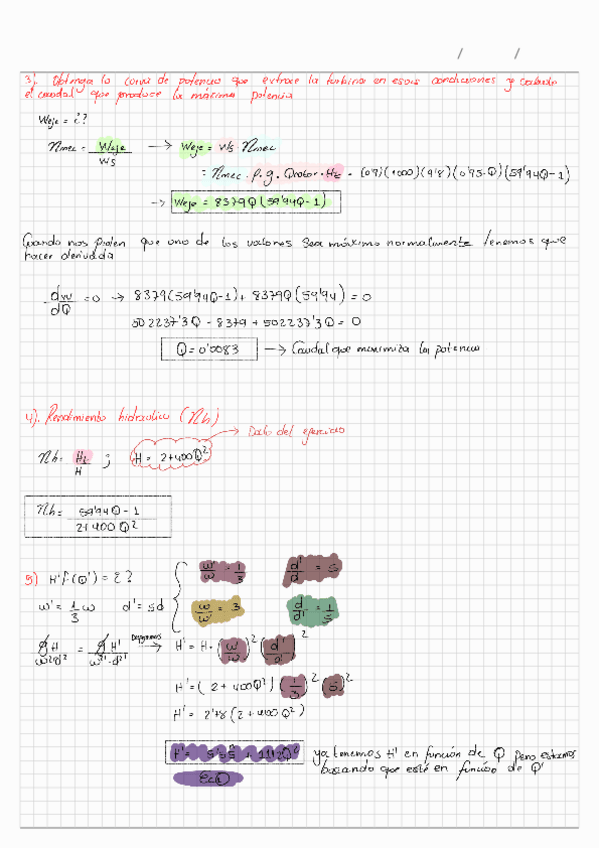 3). Obtenga la curva de potencia que extrae la turbina en esas condiciones y calcule
el caudal que produce la máxima potencia
Weje = ¿?
ηmec = Weje / Ws → Weje = Ws · ηmec
= ηmec · ρ · g · Qrotor · Ht = (0'9)(1000)(9'8)(0'95·Q)(59'94Q-1)
→ Weje = 8379Q(59'94Q-1)
Cuando nos piden que uno de los valores sea máximo normalmente tenemos que
hacer derivada
dw/dQ = 0 → 8379(59'94Q-1) + 8379Q(59'94) = 0
502237'3Q - 8379 + 502237'3Q = 0
Q = 0'0083 → Caudal que maximiza la potencia
4). Rendimiento hidraulico (ηh)
→ Dato del ejercicio
ηh = Ht / H ; H = 2+400Q²
ηh = 59'94Q-1 / 2+400Q²
5) H'f(Q') = ¿?
w'/w = 1/3 d'/d = 5
w' = 1/3 w d' = 5d w/w' = 3 d/d' = 1/5
gH / w²d² = gH' / w'²·d'² Despejamos → H' = H · (w'/w)² (d'/d)²
H' = (2+400Q²) (1/3)² (5)²
H' = 2'78 (2+400Q²)
H' = 5'55 + 1112Q² ya tenemos H' en función de Q pero estamos
Ec① buscando que esté en función de Q'